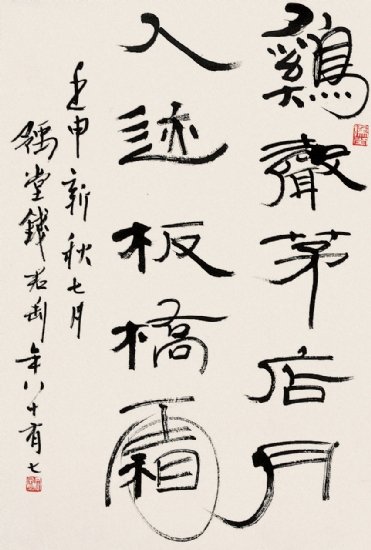 鷄聲茅店月
人迹板橋霜
壬申新秋七月
鐵堂錢君匋年八十有七